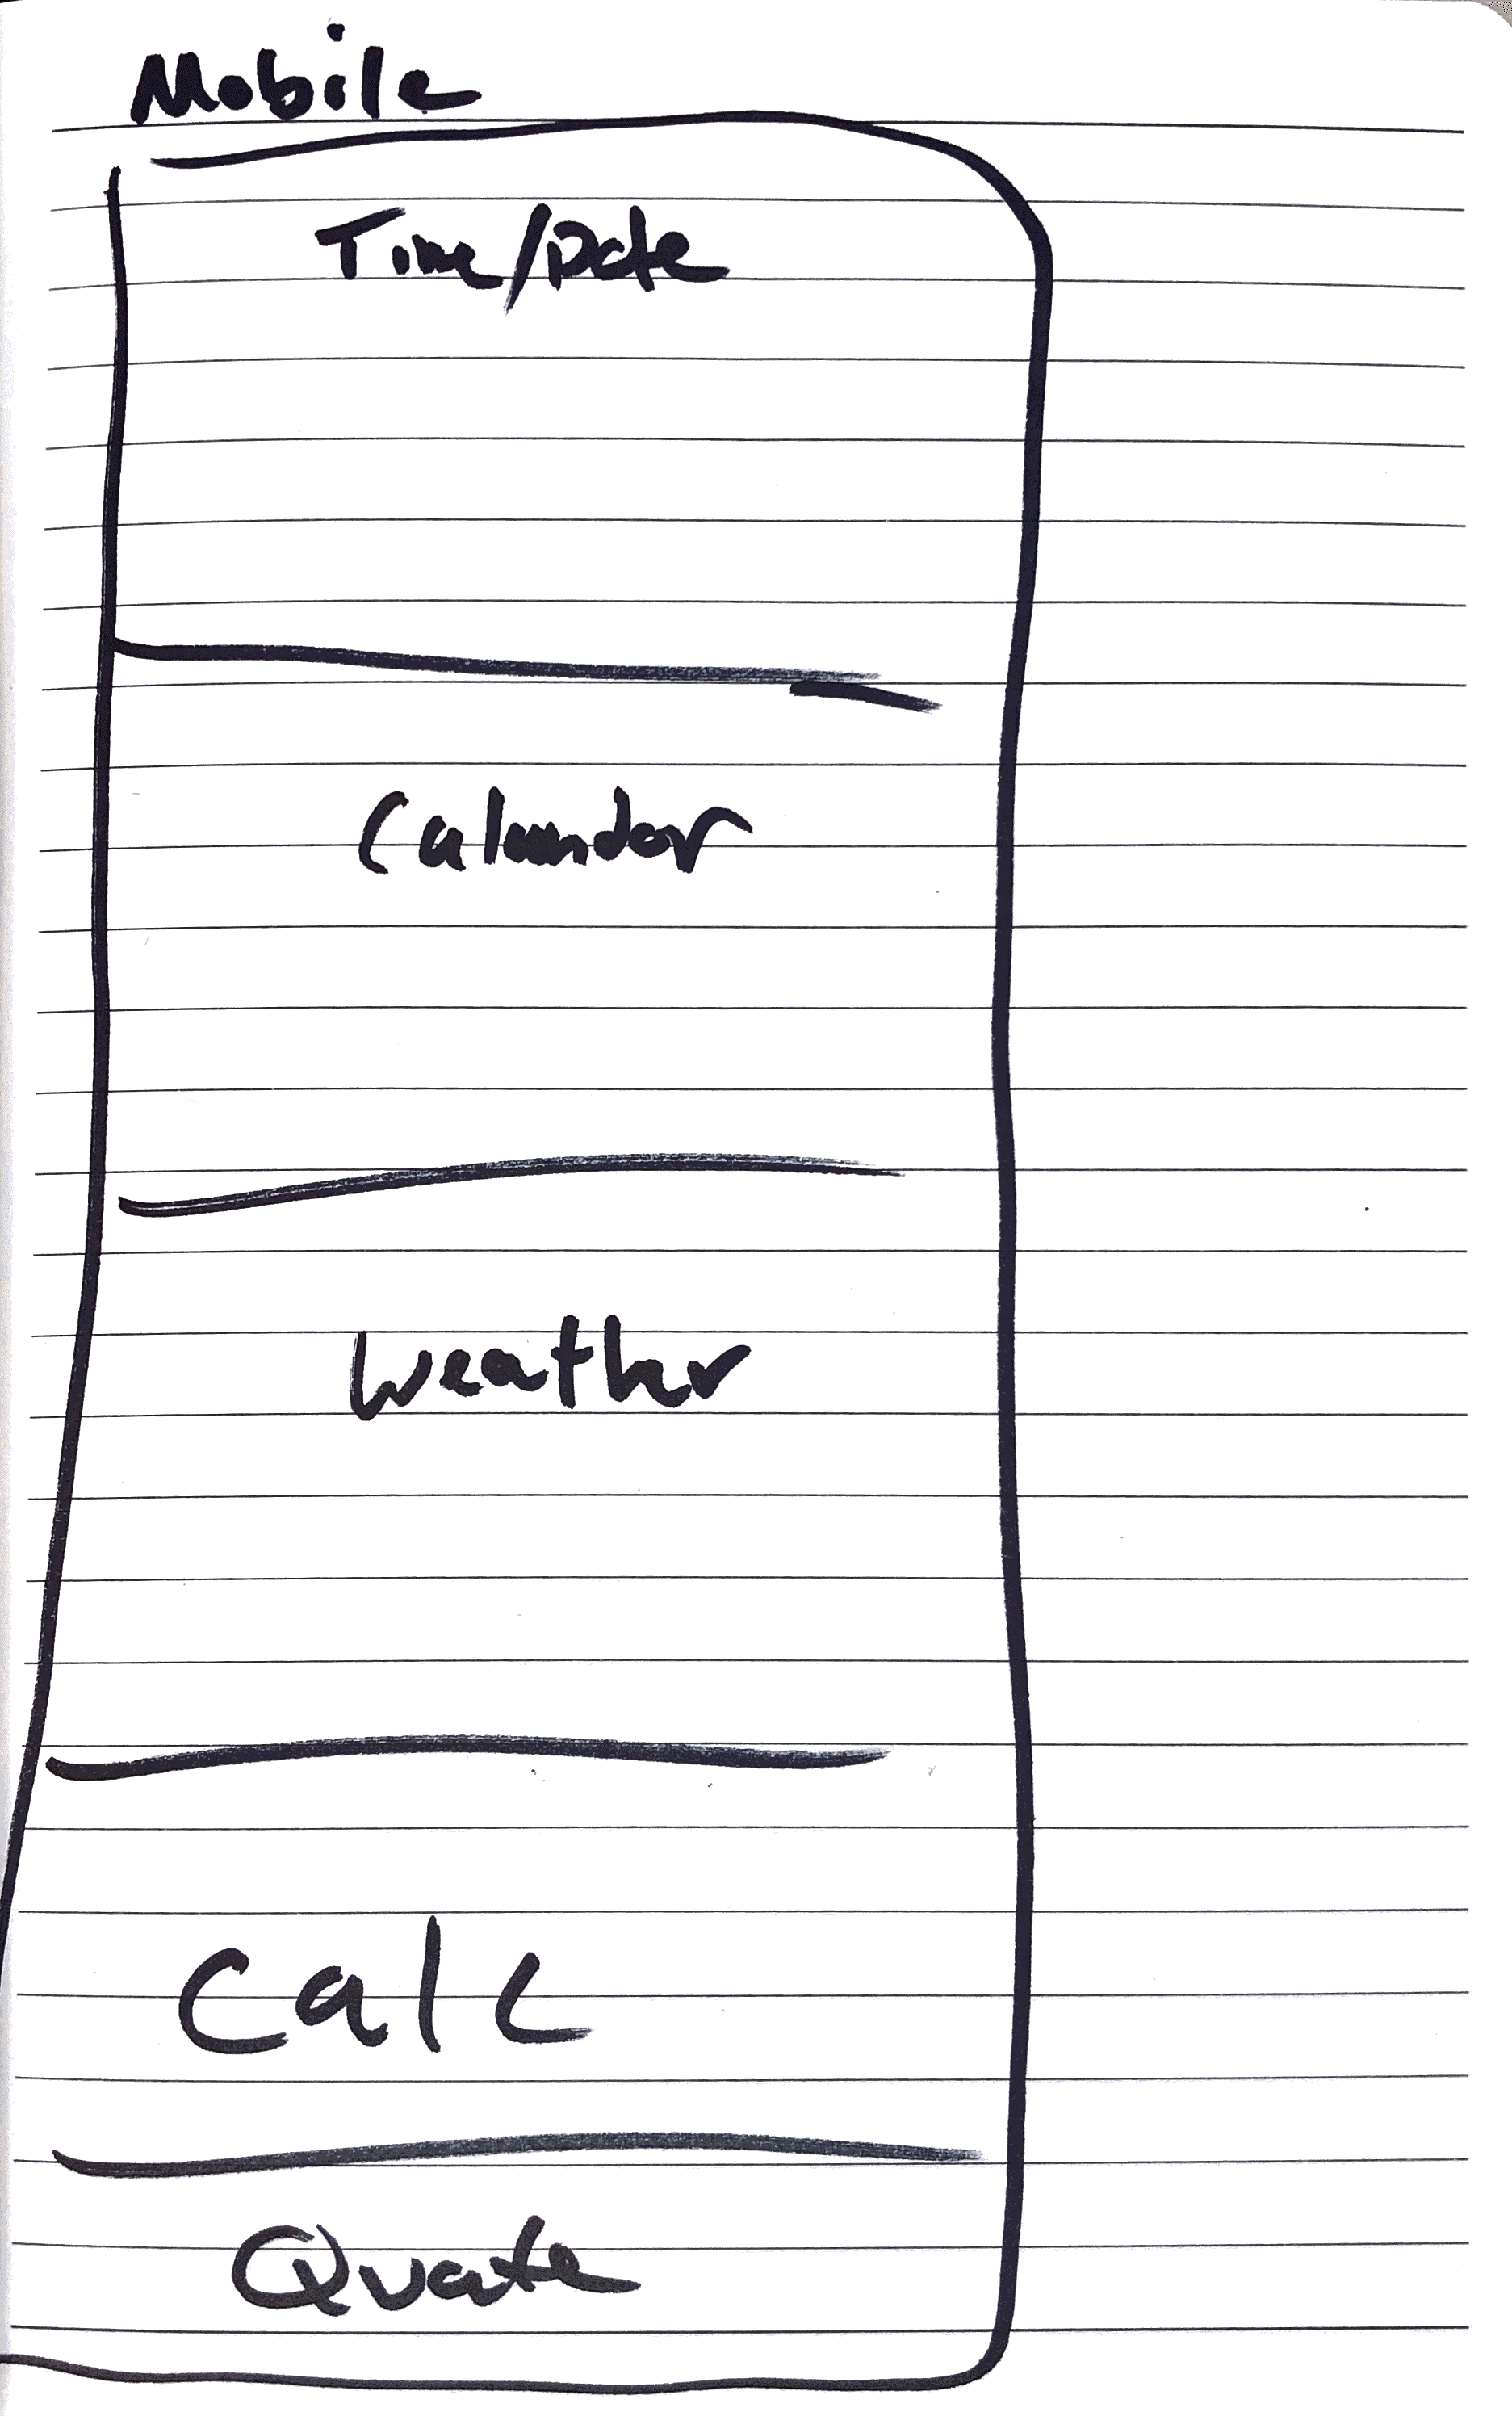 Mobile
Time/Date
Calendar
Weather
Calc
Quate